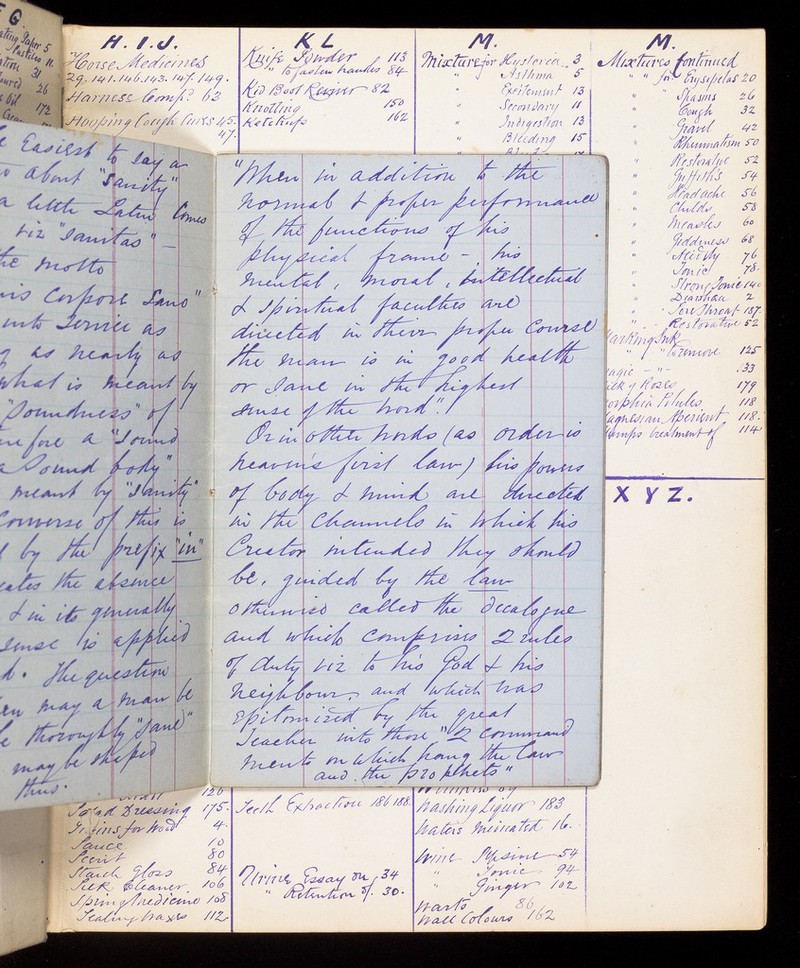 F G.
ating Paper 5
Pastiles 11
31
oured 26
172
H. I. J.
Horse Medicines
29. 141. 146. 143. 147. 149.
Harness Comp? 63
Hooping Cough Cures 45.
47.
K L
Knife Powder 113
" to fasten handles 84
Kid Boot Reviver 82
Knotting 150
Ketchup 162
M.
Mixture for Hysteria 3
" Asthma 5
" Excitement 13
" Secondary 11
" Indigestion 13
" Bleeding 15
M.
Mixtures Continued
" " for Erysipelas 20
" " Spasms 26
" " Cough 32
" Gravel 42
" Rheumatism 50
" Restorative 52
" Griffith's 54
" Headache 56
" Childs 58
" Measles 60
" Giddiness 68
" Acidity 76
" Tonic 78.
" Strong Tonic 140
" Diarrhœa 2
" Sore throat 187.
" Restorative 52
Marking Ink
" " to remove 125
agic - " - .33
ilk of Roses 179
orphia Pilules 118
agnesian Aperient 118.
umps treatment of 114
X Y Z.
e Easiest to say a
about "Sanity"
a little Latin Comes
viz "Sanitas" —
the motto
is Corpore Sano"
into Service as
as nearly as
what is meant by
"Soundness" of
refore a "Sound
a Sound body"
meant by "Sanity"
Converse of this is
d by the prefix "in"
cates the absence
& in its generally
sense is applied
d. The question
en may a man be
e thoroughly "Sane"
may be shaped
thus.
"When in addition to the
normal & proper performance
of the functions of his
physical frame – his
mental, moral, intellectual
& spiritual faculties are
directed in their proper course
the man is in good health
or Sane in the highest
sense of the word".
Or in other words (as order is
heaven's first law) his powers
of body & mind are directed
in the Channels in which his
Creator intended they should
be, guided by the law
otherwise called the decalogue
and which comprises 2 rules
of duty viz to his God & his
neighbour, and which was
Epitomized by the great
Teacher into those "2 command
ments on which hang the law
and the prophets"
120
Salad Dressing 175.
for Wood 4.
Sauce 10
Scent 80
Starch Gloss 84
Silk Cleaner 106
Spring Medicine 108
Sealing Waxes 112
Teeth Extraction 186 188.
Urine Essay on 34
" Retention of. 30.
Washing Liquor 183
Waters Medicated 16.
Wine Pepsine 54
" Tonic 94
" Ginger 102
Warts 86
Wall Colours 162